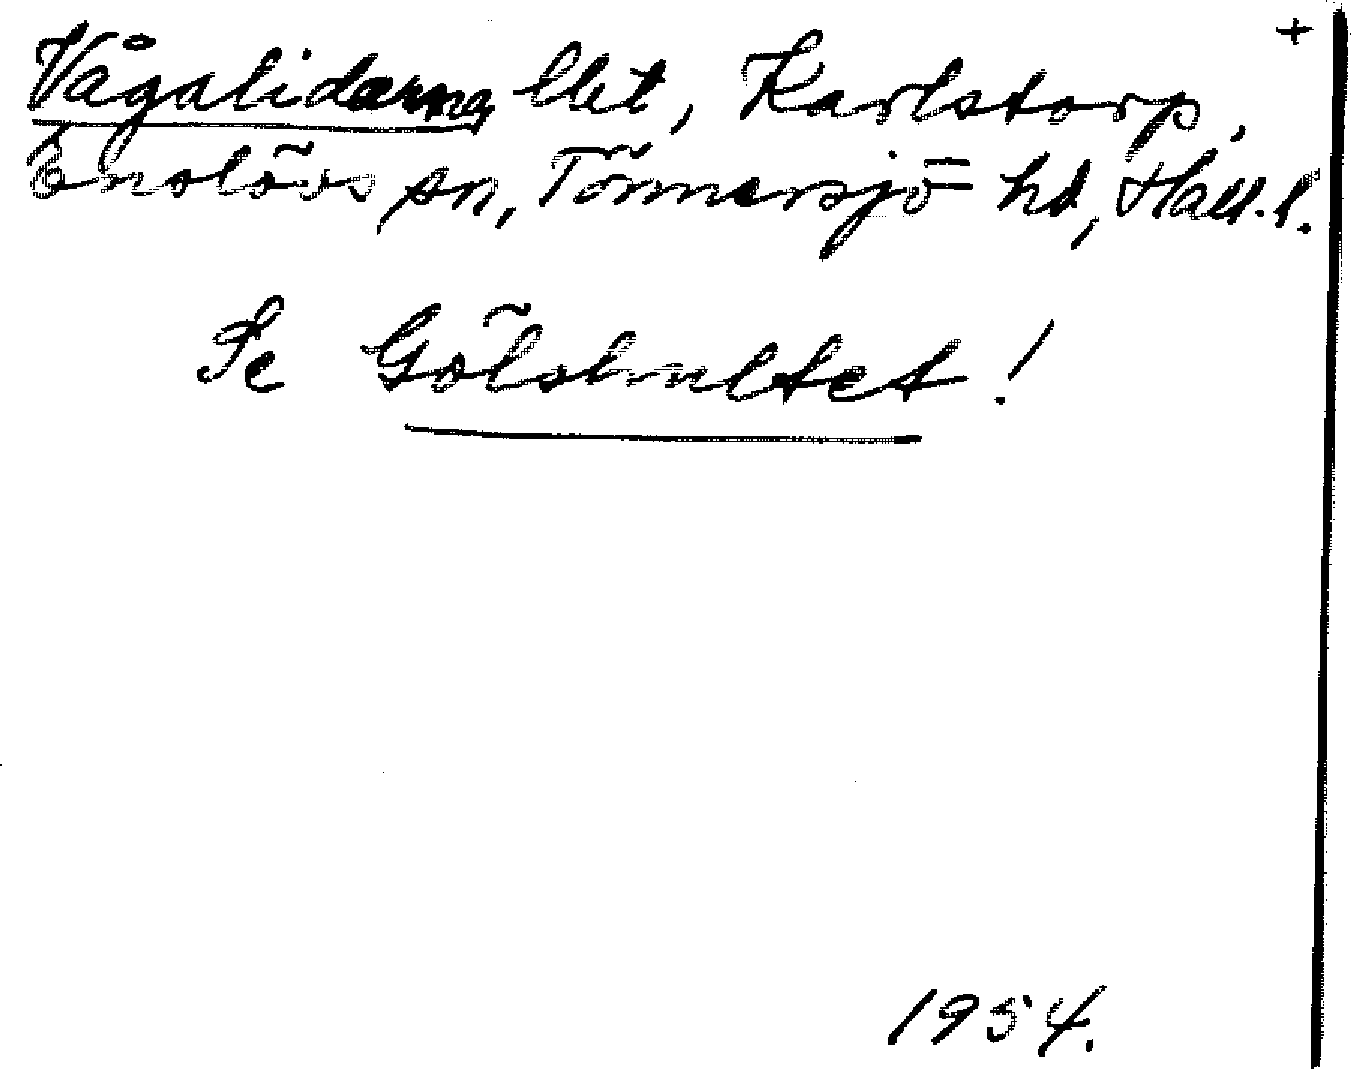 +
Vågalidarna llet, Karlstorp,
Enslövs sn, Tönnersjö hd, Hall.l.
Se Gölshultet!
1954.